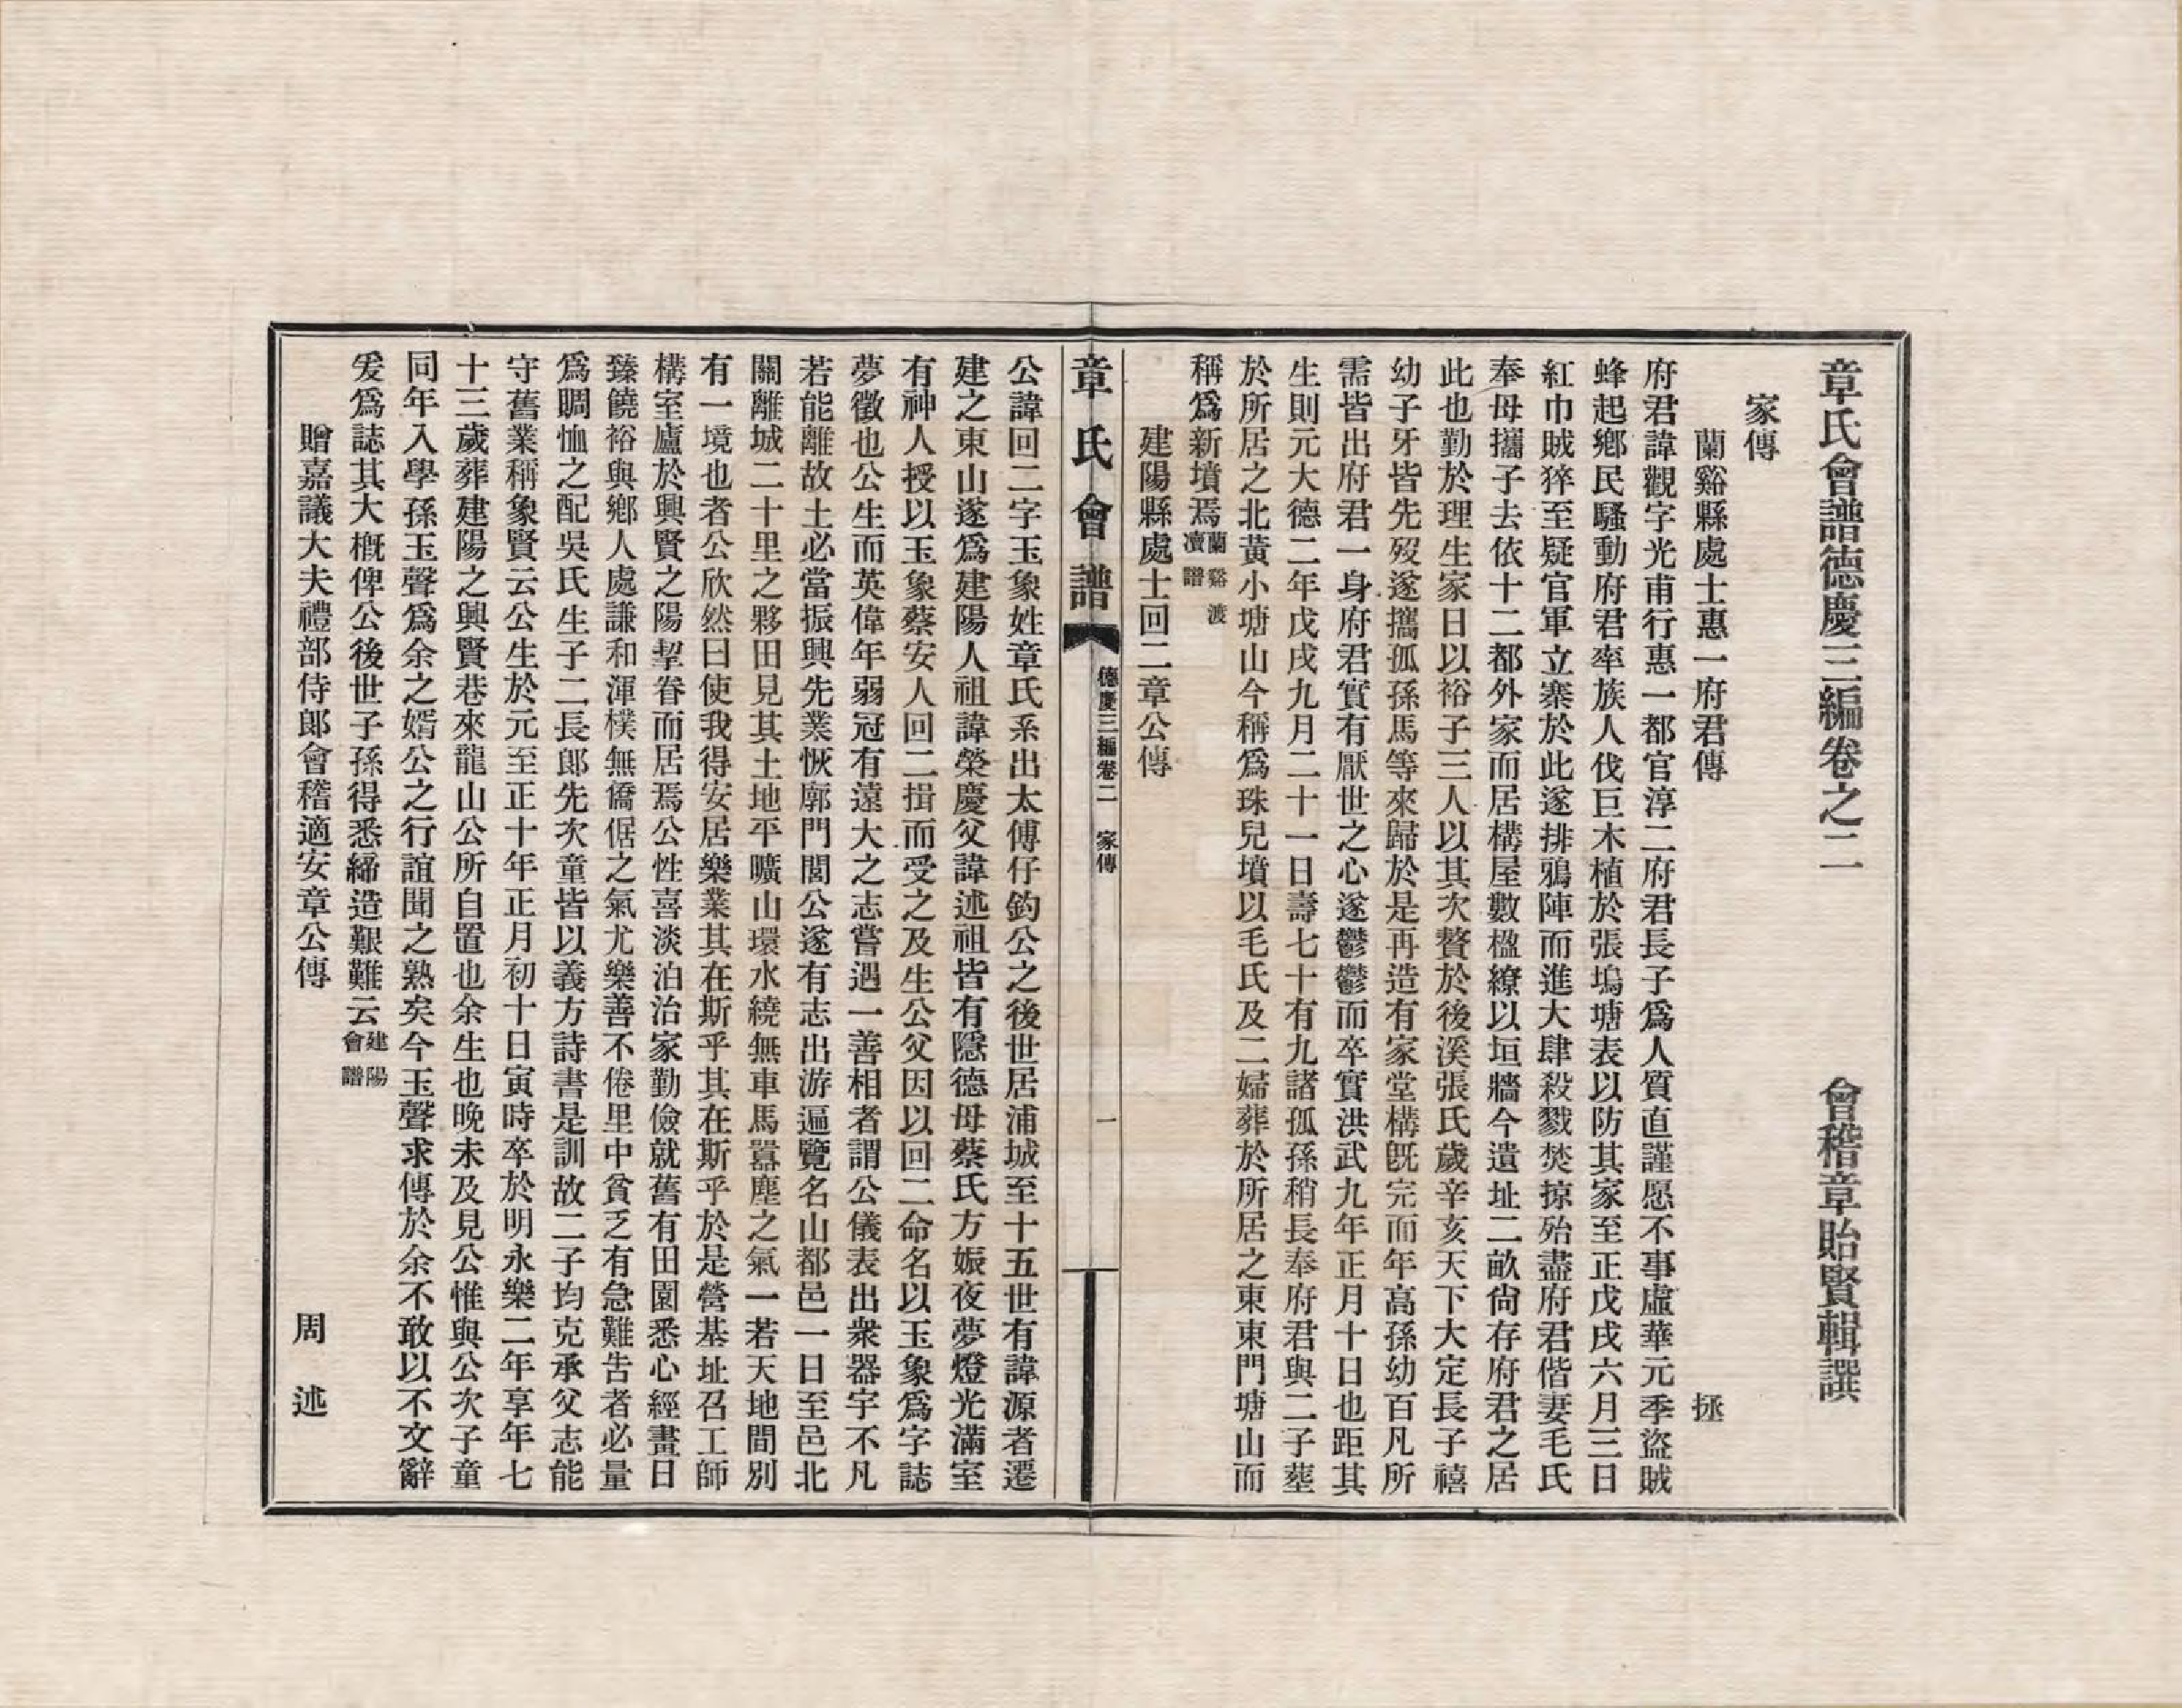 章氏會譜德慶三編卷之二　會稽章貽賢輯譔
家傳
蘭谿縣處士惠一府君傳　拯
府君諱觀字光甫行惠一都官淳二府君長子爲人質直謹愿不事虛華元季盜賊
蜂起鄉民騷動府君率族人伐巨木植於張塢塘表以防其家至正戊戌六月三日
紅巾賊猝至疑官軍立寨於此遂排鴉陣而進大肆殺戮焚掠殆盡府君偕妻毛氏
奉母攜子去依十二都外家而居構屋數楹繚以垣牆今遺址二畝尙存府君之居
此也勤於理生家日以裕子三人以其次贅於後溪張氏歲辛亥天下大定長子禧
幼子牙皆先歿遂攜孤孫馬等來歸於是再造有家堂構旣完而年高孫幼百凡所
需皆出府君一身府君實有厭世之心遂鬱鬱而卒實洪武九年正月十日也距其
生則元大德二年戊戌九月二十一日壽七十有九諸孤孫稍長奉府君與二子葬
於所居之北黃小塘山今稱爲珠兒墳以毛氏及二婦葬於所居之東東門塘山而
稱爲新墳焉蘭谿渡瀆譜
建陽縣處士回二章公傳
章氏會譜　德慶三編卷二　家傳　一
公諱回二字玉象姓章氏系出太傅仔鈞公之後世居浦城至十五世有諱源者遷
建之東山遂爲建陽人祖諱榮慶父諱述祖皆有隱德母蔡氏方娠夜夢燈光滿室
有神人授以玉象蔡安人回二揖而受之及生公父因以回二命名以玉象爲字誌
夢徵也公生而英偉年弱冠有遠大之志嘗遇一善相者謂公儀表出衆器宇不凡
若能離故土必當振興先業恢廓門閭公遂有志出游遍覽名山都邑一日至邑北
關離城二十里之夥田見其土地平曠山環水繞無車馬囂塵之氣一若天地間別
有一境也者公欣然曰使我得安居樂業其在斯乎其在斯乎於是營基址召工師
構室廬於興賢之陽挈眷而居焉公性喜淡泊治家勤儉就舊有田園悉心經畫日
臻饒裕與鄉人處謙和渾樸無僑倨之氣尤樂善不倦里中貧乏有急難告者必量
爲賙恤之配吳氏生子二長郎先次童皆以義方詩書是訓故二子均克承父志能
守舊業稱象賢云公生於元至正十年正月初十日寅時卒於明永樂二年享年七
十三歲葬建陽之興賢巷來龍山公所自置也余生也晚未及見公惟與公次子童
同年入學孫玉聲爲余之婿公之行誼聞之熟矣今玉聲求傳於余不敢以不文辭
爰爲誌其大槪俾公後世子孫得悉締造艱難云建陽會譜
贈嘉議大夫禮部侍郎會稽適安章公傳　周述